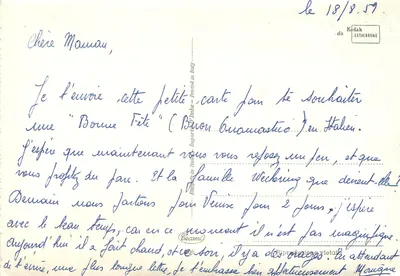 le 18/8.59
Kodak
Chère Maman,
Je t'envoie cette petite carte pour te souhaiter
une "Bonne Fête" (Buon Onomastico) en Italien.
J'espère que maintenant vous vous reposez un peu, et que
vous profitez du parc. Et la famille que devient-elle?
Demain nous partons pour Venise pour 2 jours, j'espère
avec le beau temps, car en ce moment il n'est pas magnifique
aujourd'hui il a fait chaud, et ce soir, il y a des orages. En attendant
de t'écrire une plus longue lettre, je t'embrasse bien affectueusement